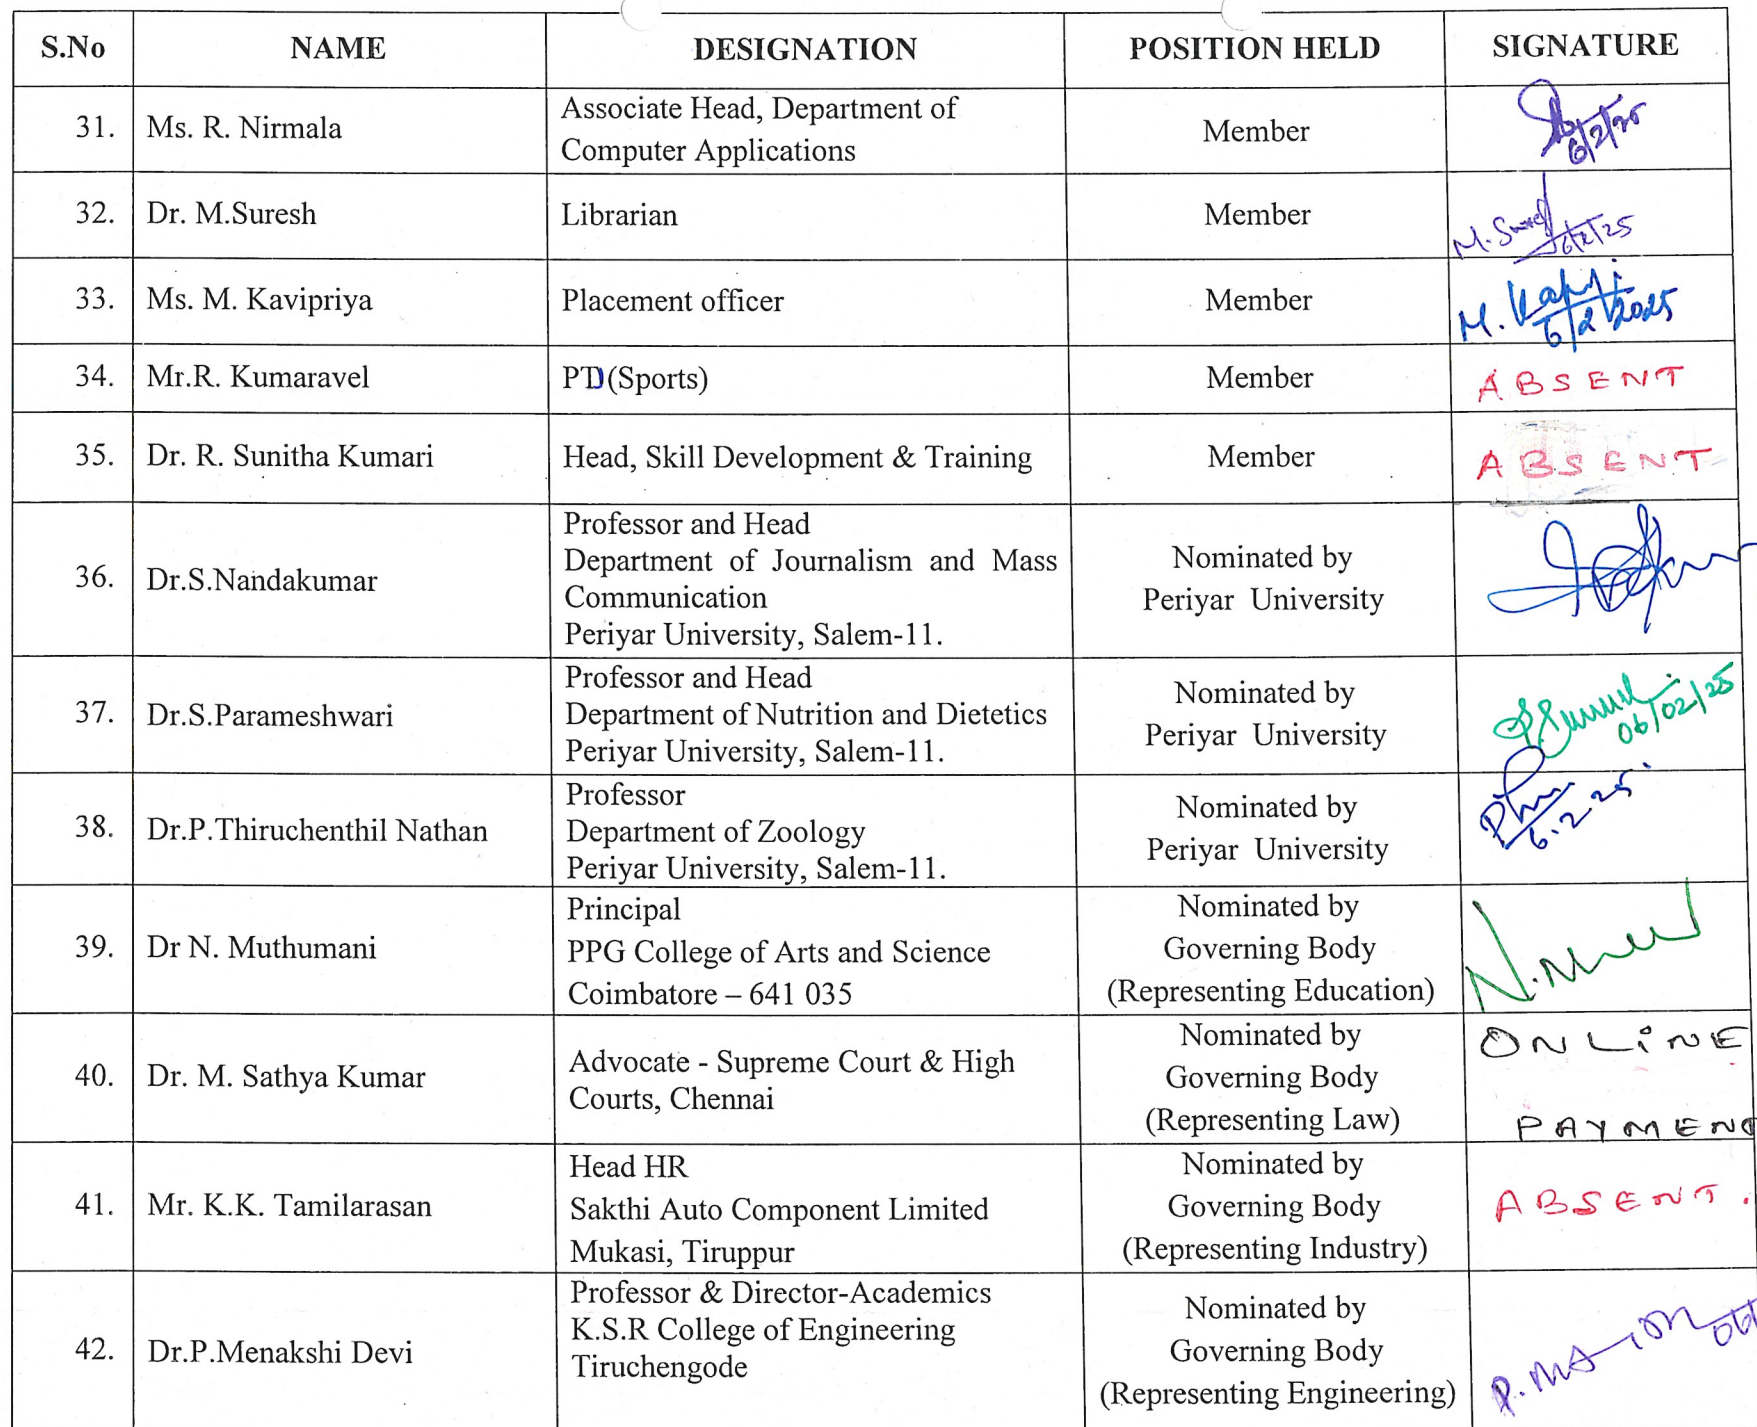 S.No NAME DESIGNATION POSITION HELD SIGNATURE
31. Ms. R. Nirmala Associate Head, Department of Computer Applications Member 6/2/25
32. Dr. M.Suresh Librarian Member M. Suresh 6/2/25
33. Ms. M. Kavipriya Placement officer Member M. 6/2/2025
34. Mr.R. Kumaravel PD (Sports) Member ABSENT
35. Dr. R. Sunitha Kumari Head, Skill Development & Training Member ABSENT
36. Dr.S.Nandakumar Professor and Head
Department of Journalism and Mass
Communication
Periyar University, Salem-11.
Nominated by
Periyar University
37. Dr.S.Parameshwari Professor and Head
Department of Nutrition and Dietetics
Periyar University, Salem-11.
Nominated by
Periyar University
06/02/25
38. Dr.P.Thiruchenthil Nathan Professor
Department of Zoology
Periyar University, Salem-11.
Nominated by
Periyar University
6.2.25
39. Dr N. Muthumani Principal
PPG College of Arts and Science
Coimbatore – 641 035
Nominated by
Governing Body
(Representing Education)
40. Dr. M. Sathya Kumar Advocate - Supreme Court & High
Courts, Chennai
Nominated by
Governing Body
(Representing Law)
ONLINE
PAYMENT
41. Mr. K.K. Tamilarasan Head HR
Sakthi Auto Component Limited
Mukasi, Tiruppur
Nominated by
Governing Body
(Representing Industry)
ABSENT.
42. Dr.P.Menakshi Devi Professor & Director-Academics
K.S.R College of Engineering
Tiruchengode
Nominated by
Governing Body
(Representing Engineering)